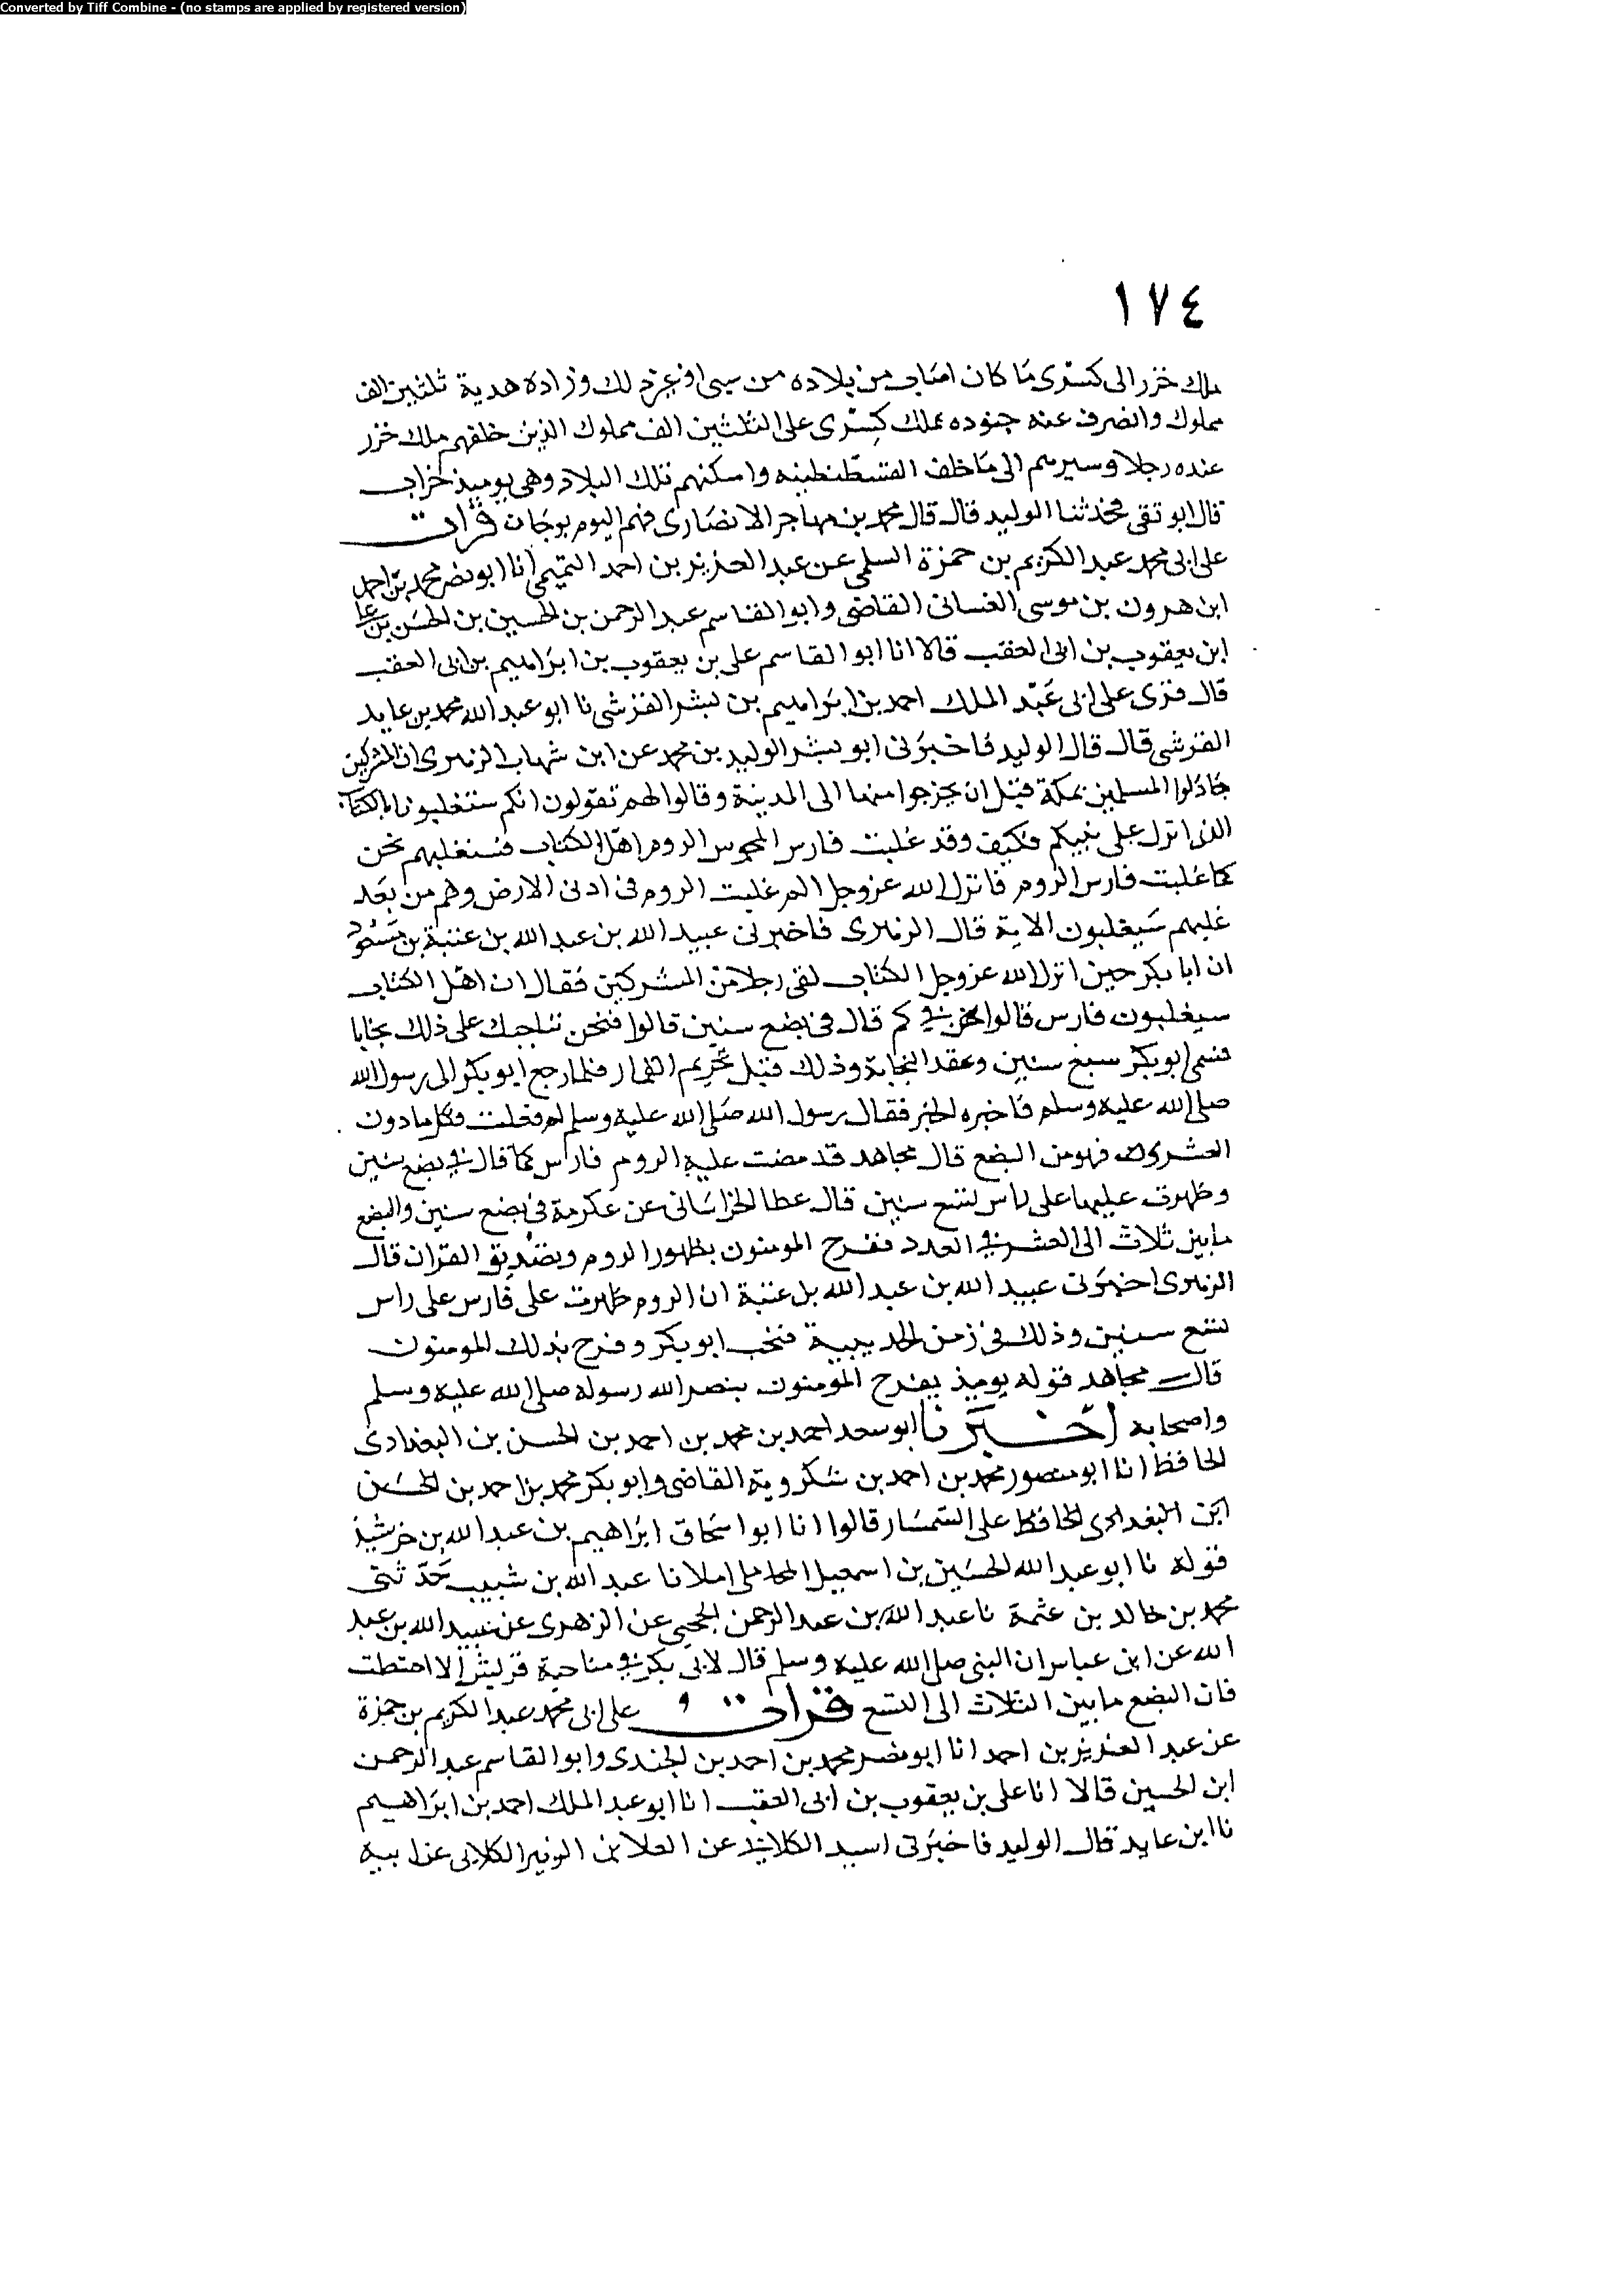 Converted by Tiff Combine - (no stamps are applied by registered version)
١٧٤
ملك خزر الى كسرى ما كان اصاب من بلاده من سبى او غير ذلك وزاده هدية ثلثين الف
مملوك وانصرف عنه جنوده عملك كسرى على الثلثين الف مملوك الذين خلفهم ملك خزر
عنده رجلا وسيرهم الى ما خلف القسطنطينه واسكنهم تلك البلاد وهى يوميذ خراب
قال ابو تقى فحدثنا الوليد قال قال محمد بن مهاجر الانصارى فهم اليوم بوجان قرات
على ابى محمد عبد الكريم بن حمزة السلمى عن عبد العزيز بن احمد التميمى انا ابو نصر محمد بن احمد
ابن هرون بن موسى الغسانى القاضى وابو القاسم عبد الرحمن بن الحسين بن الحسن بن على
ابن يعقوب بن ابى العقب قالا انا ابو القاسم على بن يعقوب بن ابراهيم بن ابى العقب
قال قرى على ابى عبد الملك احمد بن ابراهيم بن بشر القرشى نا ابو عبد الله محمد بن عايد
القرشى قال قال الوليد فاخبرنى ابو بشر الوليد بن محمد عن ابن شهاب الزهرى ان المشركين
جادلوا المسلمين بمكة قبل ان يخرجوا منها الى المدينة وقالوا لهم تقولون انكم ستغلبونا بالكتاب
الذى انزل على نبيكم فكيف وقد غلبت فارس المجوس الروم اهل الكتاب فسنغلبهم نحن
كما غلبت فارس الروم فانزل الله عز وجل الم غلبت الروم فى ادنى الارض وهم من بعد
غلبهم سيغلبون الاية قال الزهرى فاخبرنى عبيد الله بن عبد الله بن عتبة بن مسعود
ان ابا بكر حين انزل الله عز وجل الكتاب لقى رجلا من المشركين فقال ان اهل الكتاب
سيغلبون فارس قالوا فى كم قال فى بضع سنين قالوا فنحن نناحبك على ذلك نحابا
فسمى ابو بكر سبع سنين وعقد النحابة وذلك قبل تحريم القمار فلما رجع ابو بكر الى رسول الله
صلى الله عليه وسلم فاخبره الخبر فقال رسول الله صلى الله عليه وسلم لم فعلت فكل ما دون
العشر فهو من البضع قال مجاهد قد مضت عليه الروم فارس كما قال فى بضع سنين
وظهرت عليها على راس تسع سنين قال عطا الخراسانى عن عكرمة فى بضع سنين والبضع
ما بين ثلاث الى العشر فى العدد ففرح المومنون بظهور الروم وبتصديق القران قال
الزهرى اخبرنى عبيد الله بن عبد الله بن عتبة ان الروم ظهرت على فارس على راس
تسع سنين وذلك فى زمن الحديبية فنحب ابو بكر وفرح بذلك المومنون
قال مجاهد قوله يوميذ يفرح المومنون بنصر الله رسوله صلى الله عليه وسلم
واصحابه اخبرنا ابو سعد احمد بن محمد بن احمد بن الحسن بن البغدادى
الحافظ انا ابو منصور محمد بن احمد بن شكروية القاضى وابو بكر محمد بن احمد بن الحسن
ابن البغدادى الحافظ على السمسار قالوا انا ابو اسحاق ابراهيم بن عبد الله بن خرشيذ
قوله نا ابو عبد الله الحسين بن اسمعيل المحاملى املا نا عبد الله بن شبيب حدثنى
محمد بن خالد بن عثمة نا عبد الله بن عبد الرحمن الجمحى عن الزهرى عن عبيد الله بن عبد
الله عن ابن عباس ان النبى صلى الله عليه وسلم قال لابى بكر فى مناحبة قريش الا احتطت
فان البضع ما بين الثلاث الى التسع قرات على ابى محمد عبد الكريم بن حمزة
عن عبد العزيز بن احمد انا ابو نصر محمد بن احمد بن الجندى وابو القاسم عبد الرحمن
ابن الحسين قالا انا على بن يعقوب بن ابى العقب انا ابو عبد الملك احمد بن ابراهيم
نا ابن عايد قال الوليد فاخبرنى اسيد الكلابى عن العلا بن الزبير الكلابى عن ابيه